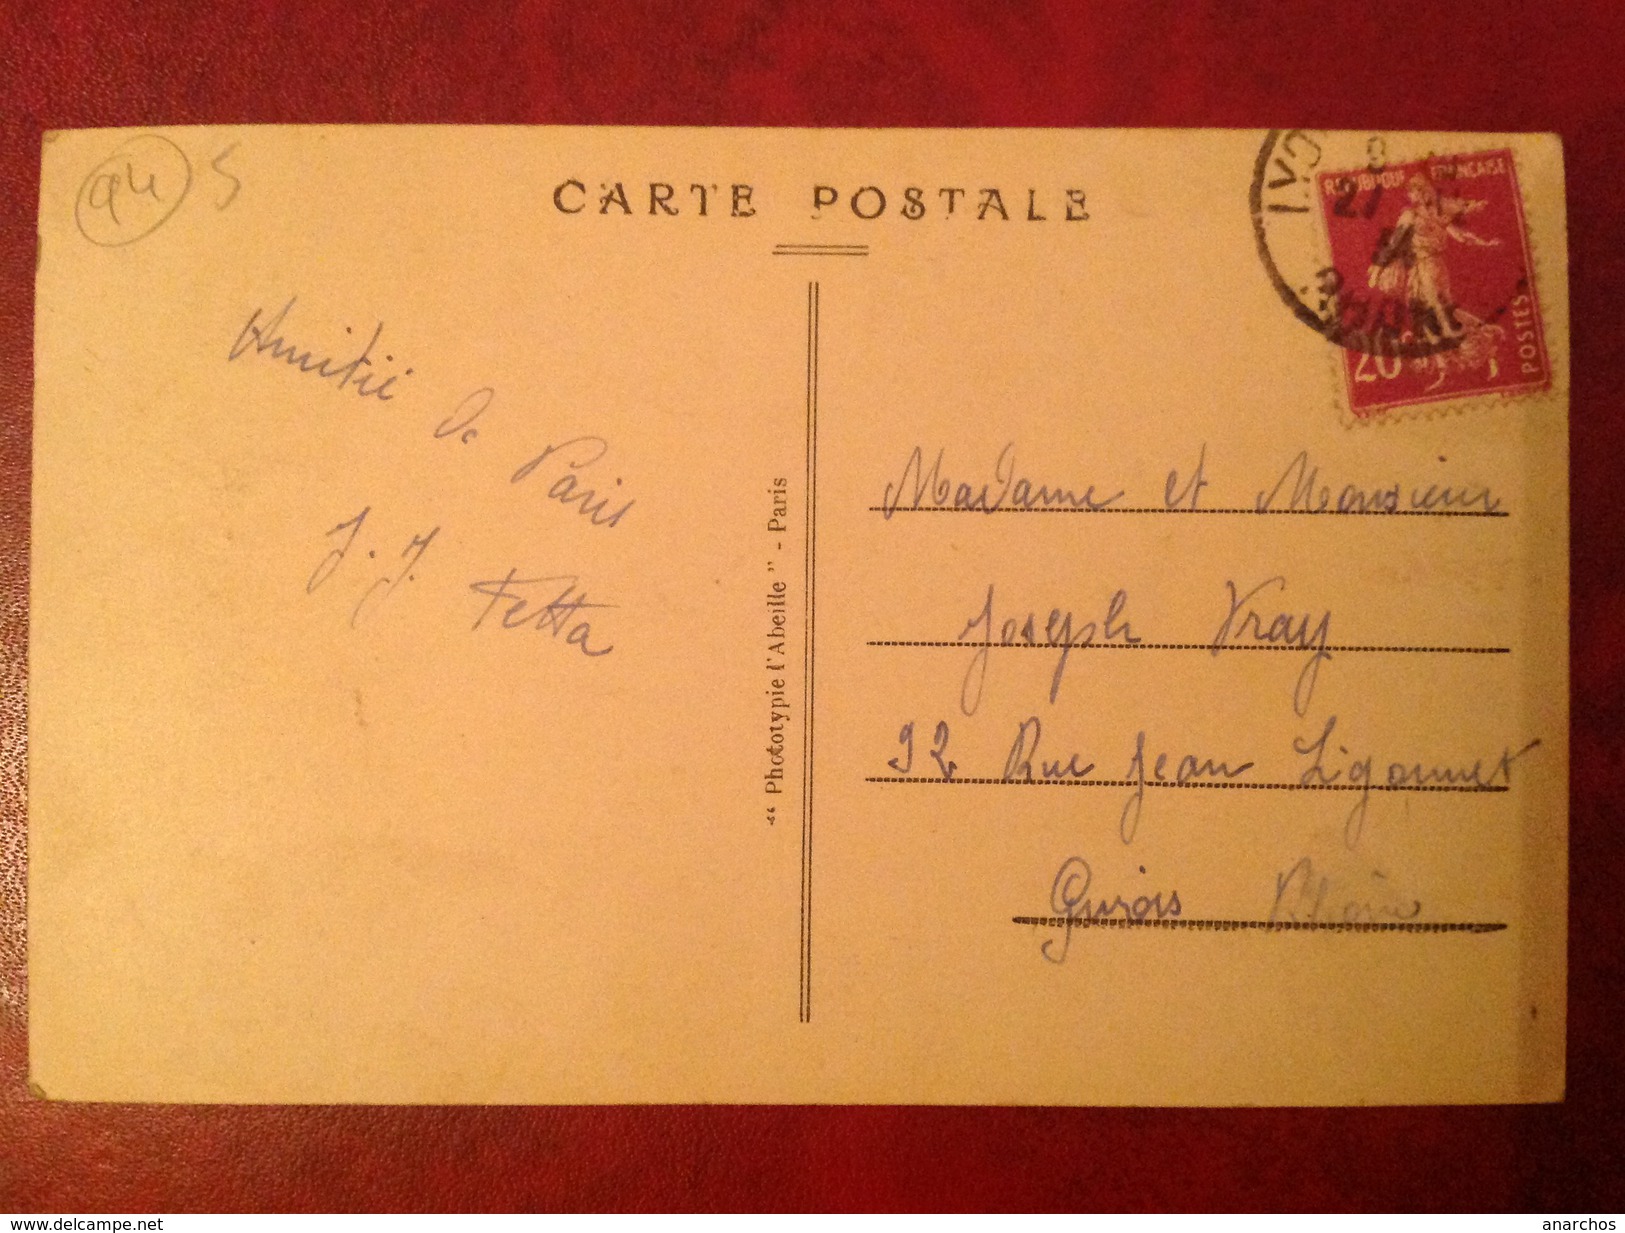 94 5
CARTE POSTALE
RÉPUBLIQUE FRANÇAISE
27
20
POSTES
Amitié
de
Paris
J. J.
Fetta
"Phototypie l'Abeille" - Paris
Madame et Monsieur
Joseph Vray
92 Rue Jean Ligonnet
Givors Rhône
www.delcampe.net
anarchos